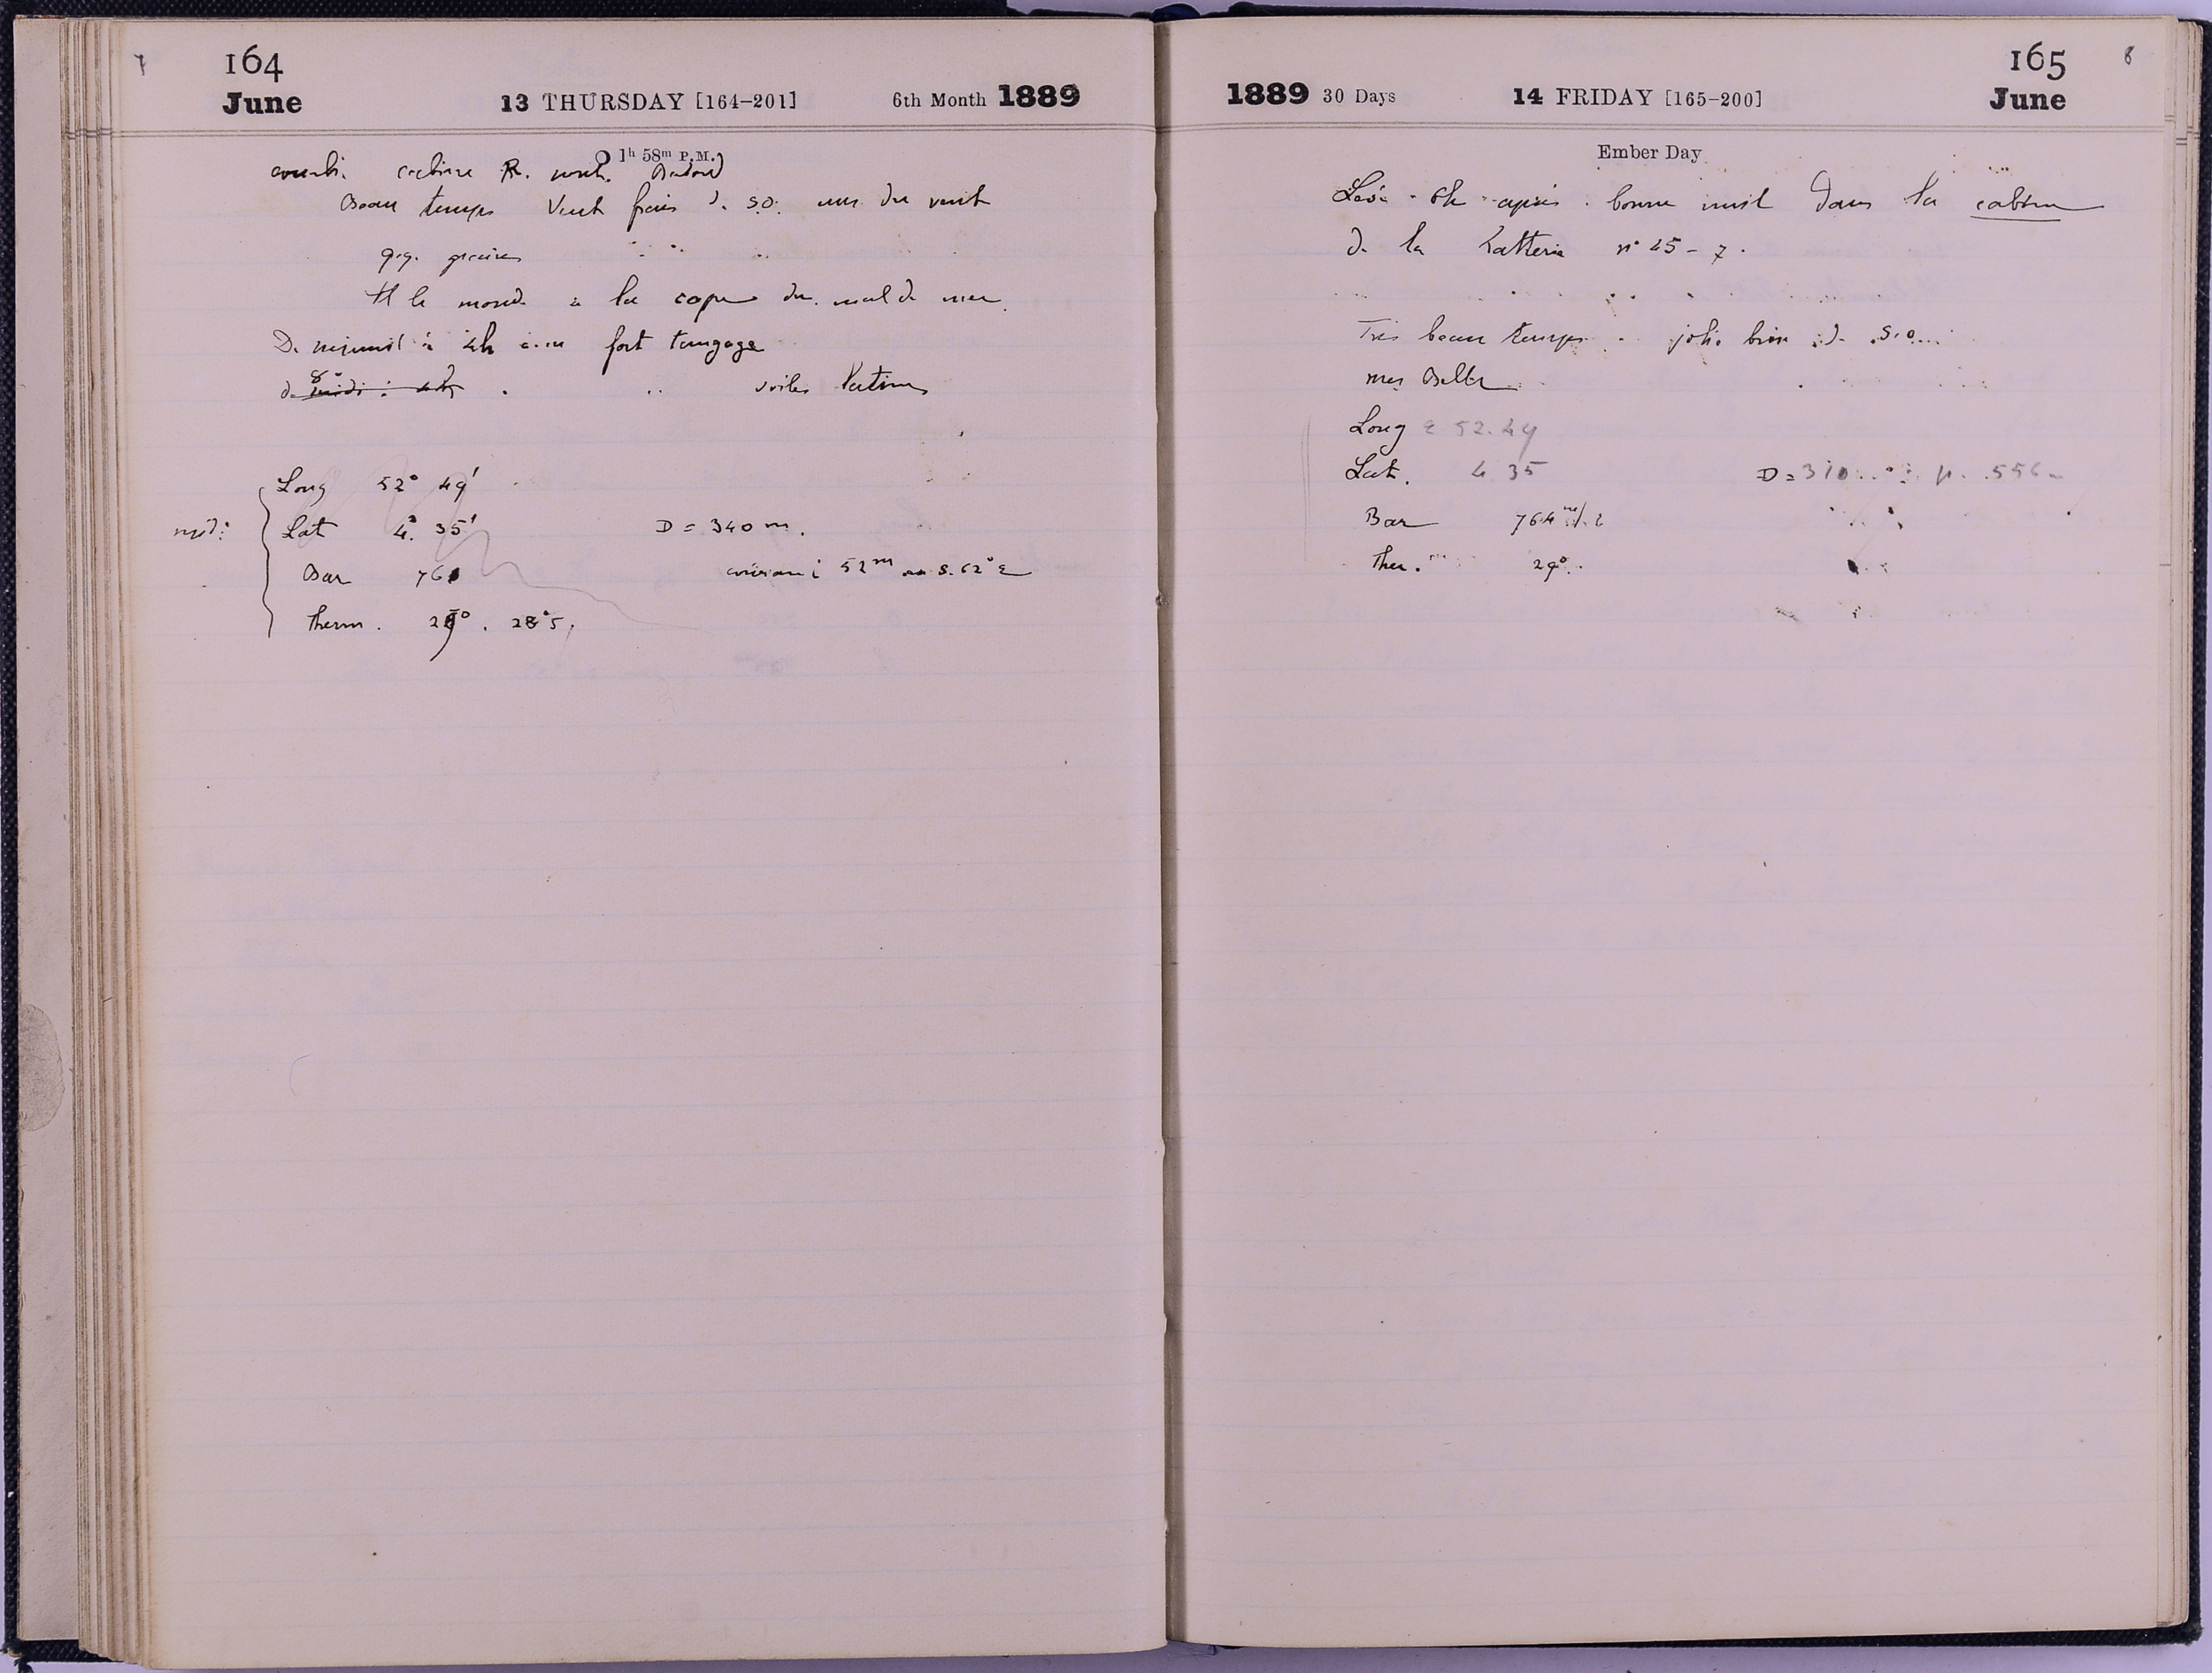 7
164
June
13 THURSDAY [164-201]
6th Month 1889
1h 58m P.M.
cabine
Beau temps Vent frais d. S.O. mer du vent
q.q. grains
Tt le monde a la cape du mal de mer.
De minuit à 4h fort tangage
8h
midi à 4h
voiles latines
midi
Long 52° 49'
Lat 4° 35' D = 340 m.
Bar 761
courant 52m au S. 62° E
Therm. 29° . 28°5.
1889 30 Days
14 FRIDAY [165-200]
165
June
8
Ember Day
Levé 6h après bonne nuit dans la cabine
de la batterie n° 25-7.
Très beau temps jolie brise d. S.O.
mer Belle
Long E 52.49
Lat. 4 35 D = 310 556
Bar 764 m/. 2
Ther. 29°.